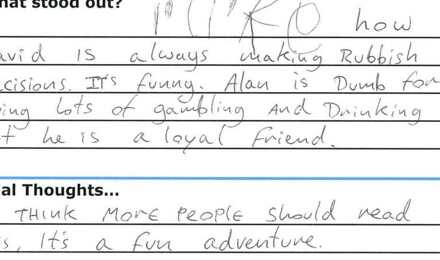 hat stood out?
how
avid is always making Rubbish
cisions. It's funny. Alan is Dumb for
ing lots of gambling And Drinking
t he is a loyal friend.
al Thoughts...
THINK MORE PEOPLE should read
s, It's a fun adventure.